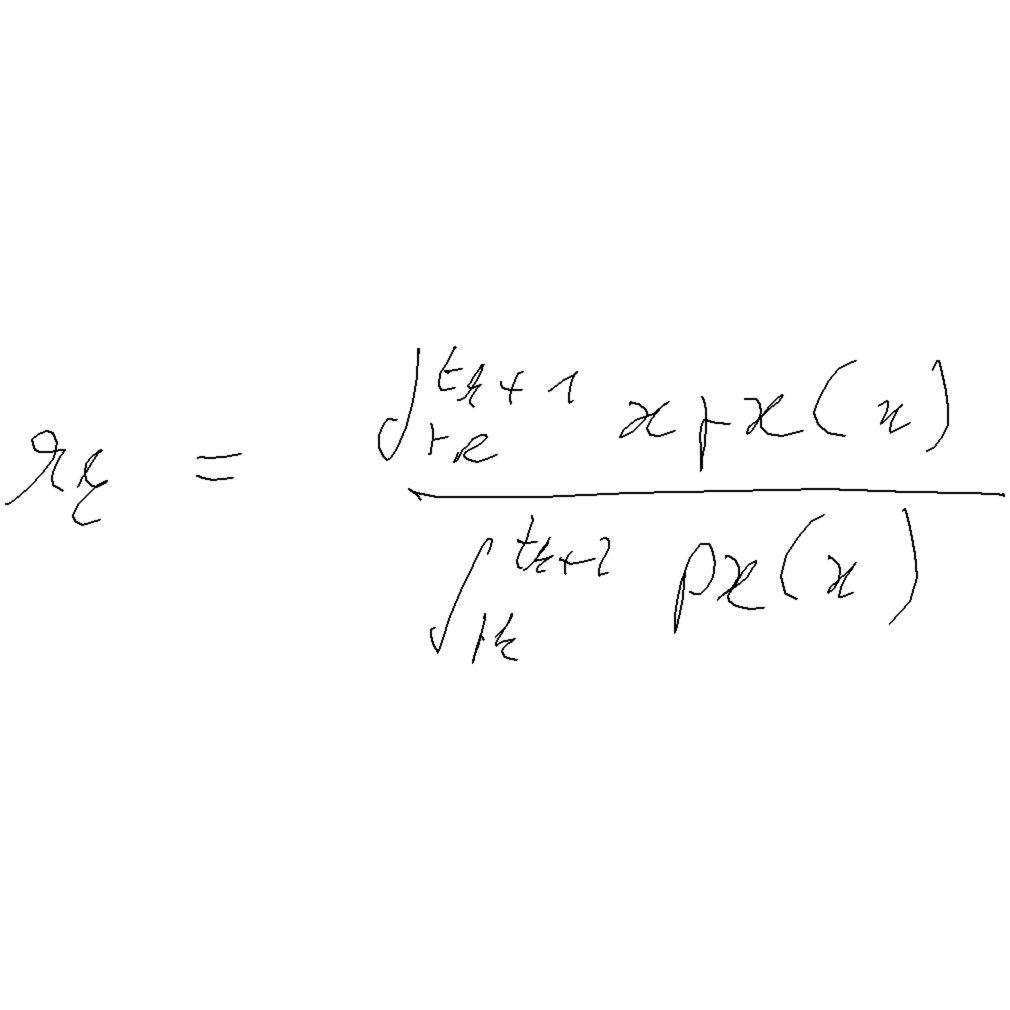 r_k = \frac{\int_{t_k}^{t_{k+1}} x p_x(x)}{\int_{t_k}^{t_{k+1}} p_x(x)}